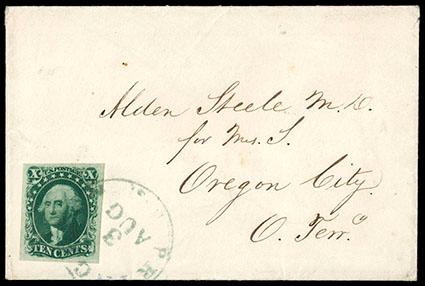 Alden Steele M.D.
for Mrs. S.
Oregon City
O. Terr.y
X U.S. POSTAGE X
TEN CENTS
3
AUG